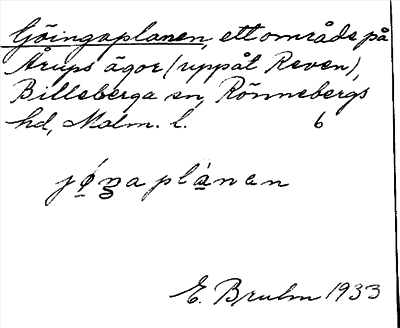 Göingaplanen, ett område på
Årups ägor (uppåt Reven),
Billeberga sn, Rönnebergs
hd, Malm. l. 6
jǿŋaplànen
E. Bruhm 1933